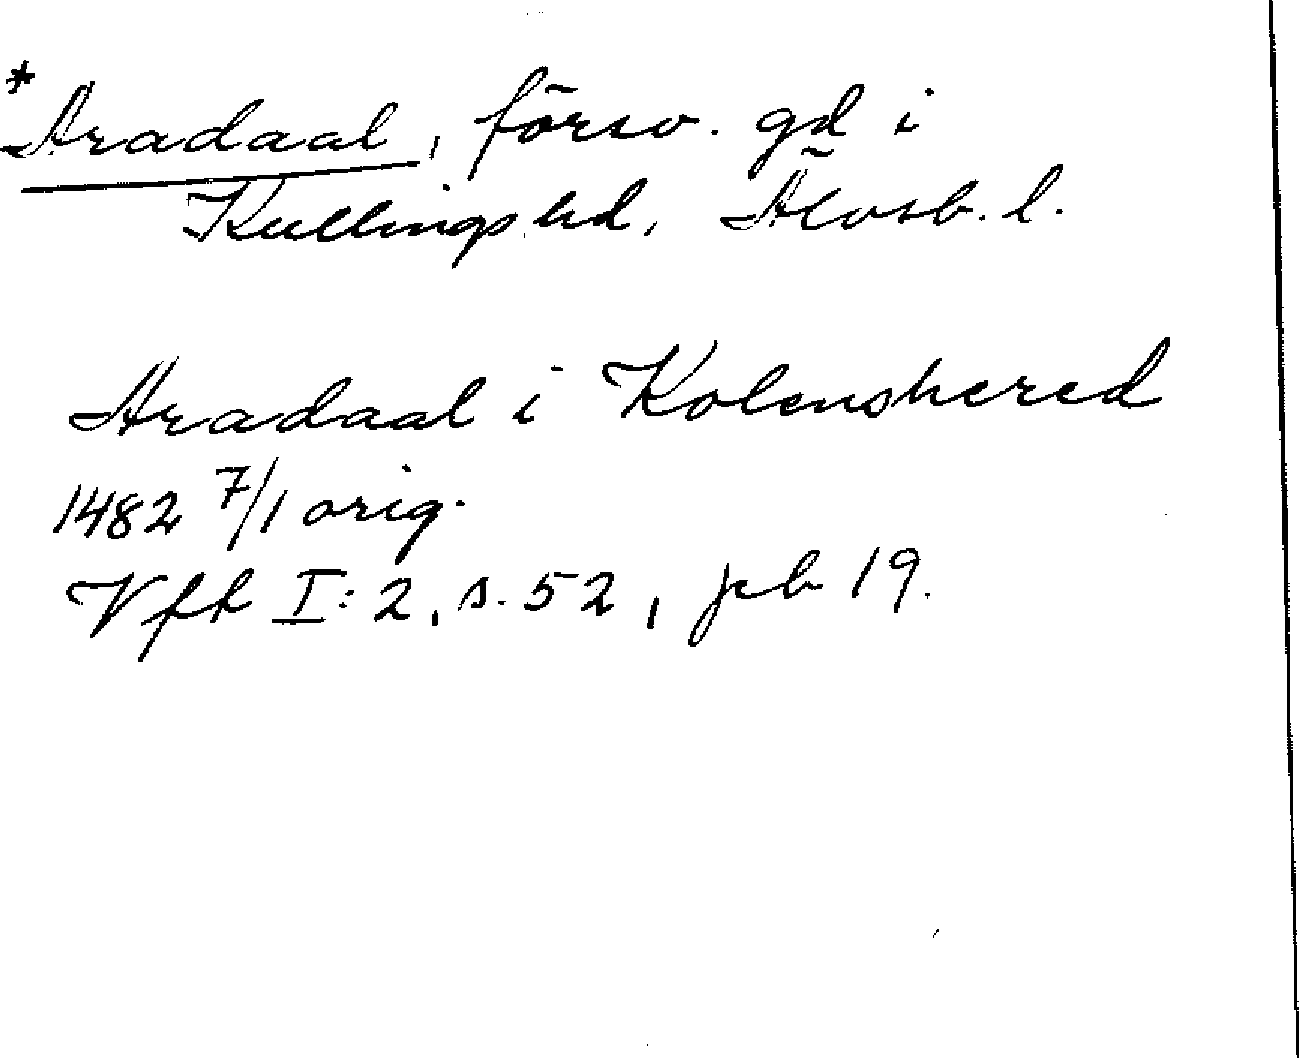 *Aradaal, försv. gd i
Kullings hd, Älvsb. l.
Aradaal i Kolenshered
1482 7/1 orig.
Vfft I:2, s. 52, peb 19.